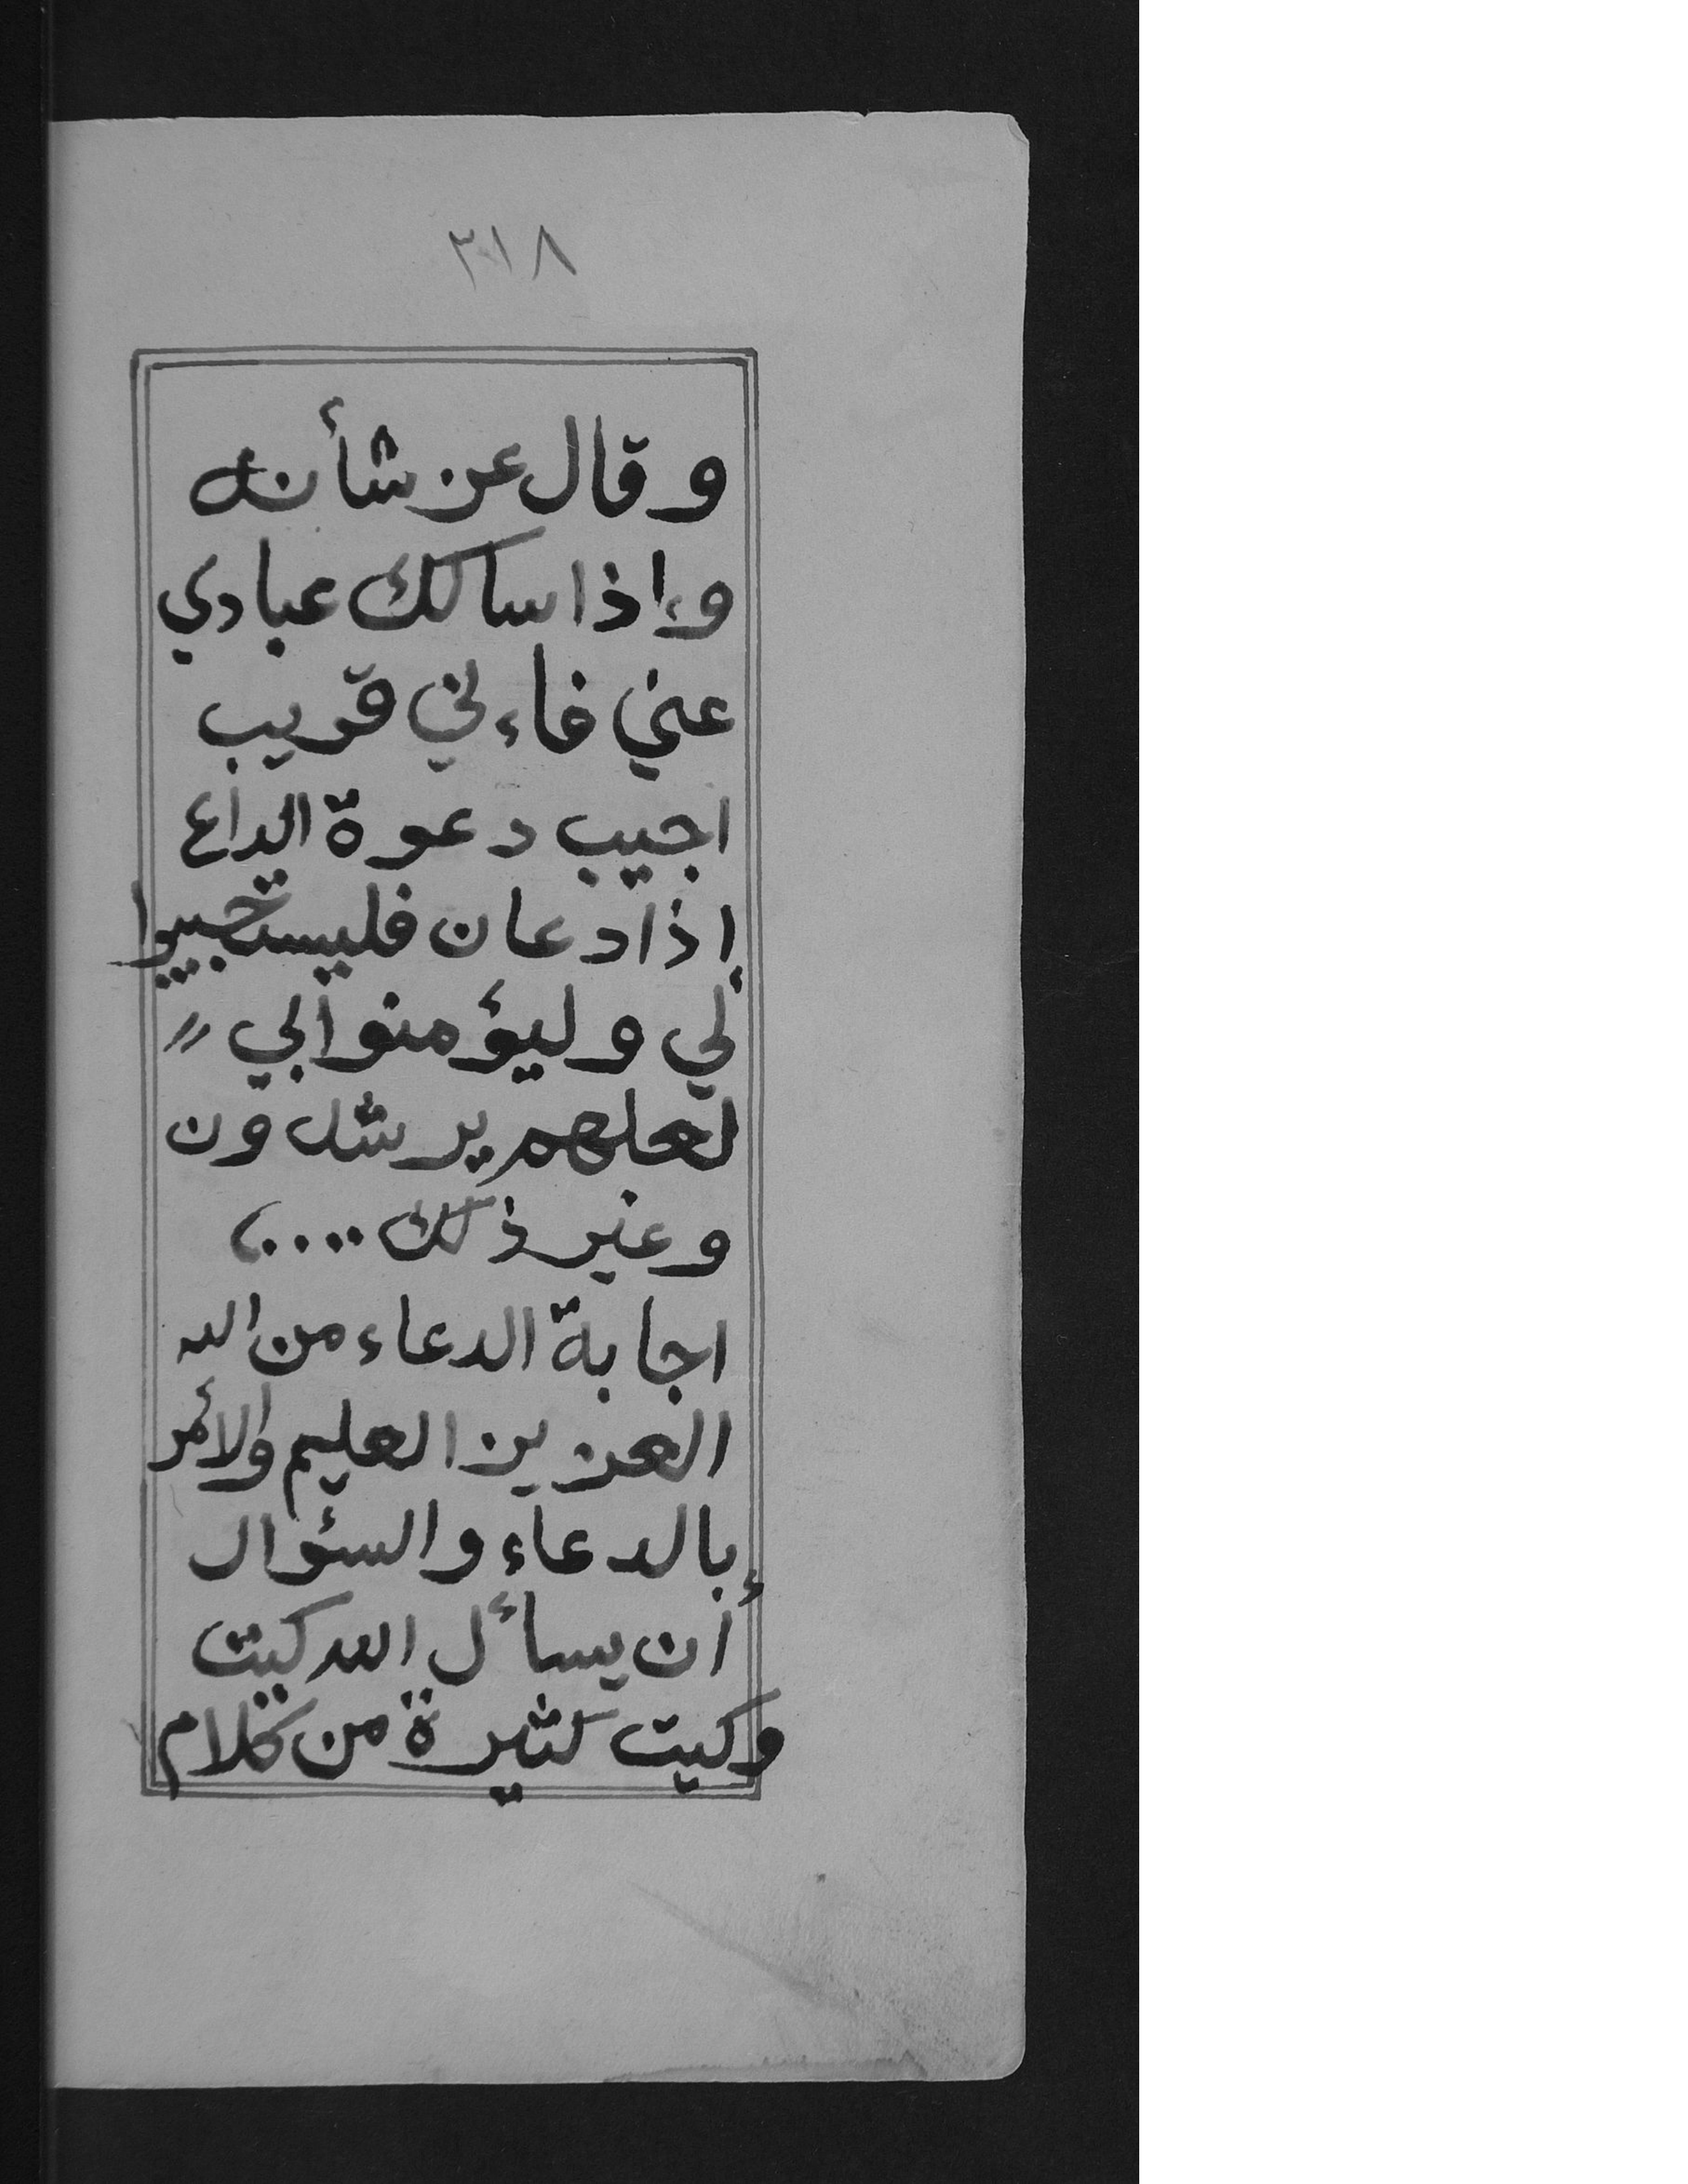 ٣١٨
و قال عن شأنه
وإذا سالك عبادي
عني فاءني قريب
اجيب دعوة الداع
إذا دعان فليستجيبوا
لي وليؤمنوا بي "
لعلهم يرشدون
وغير ذلك ....،
اجابة الدعاء من الله
العزيز العليم والأمر
بالدعاء والسؤال
أن يسأل الله كيت
وكيت كثيرة من كلام